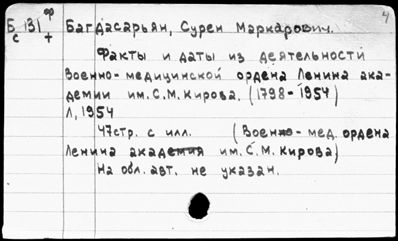 4
Б 131 ф Багдасарьян, Сурен Маркарович.
с т
Факты и даты из деятельности
Военно-медицинской ордена Ленина ака-
демии им. С.М. Кирова. (1798-1954)
Л, 1954
47стр. с илл. (Военно-мед. ордена
Ленина академия им. С.М. Кирова)
На обл. авт. не указан.